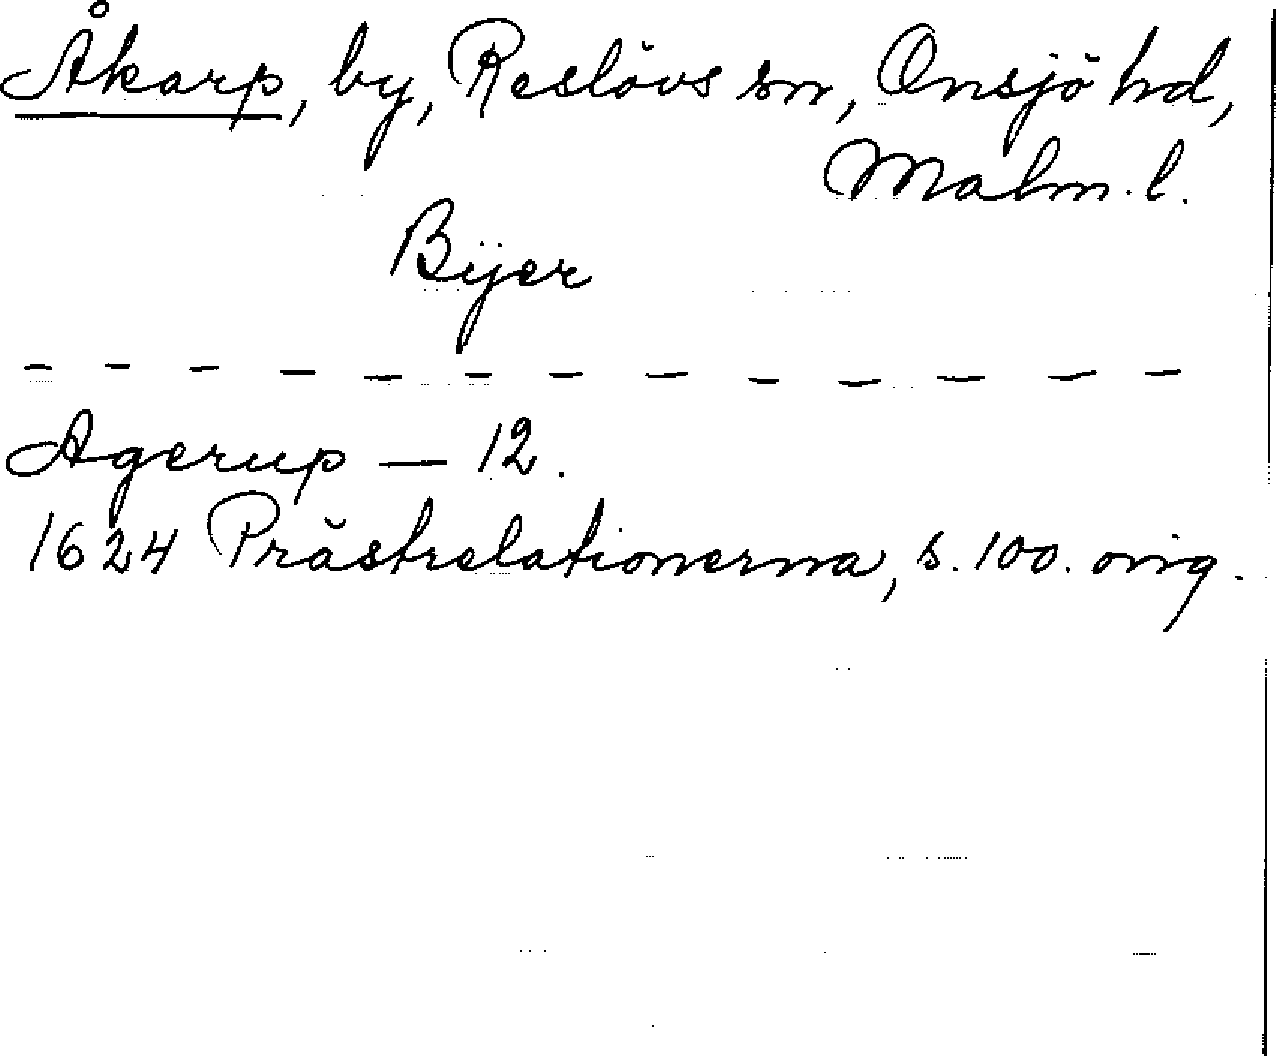 Åkarp, by, Reslövs sn, Onsjö hd,
Malm. l.
Bÿer
- - - - - - - - - - - - -
Agerup — 12.
1624 Prästrelationerna, s. 100. orig.